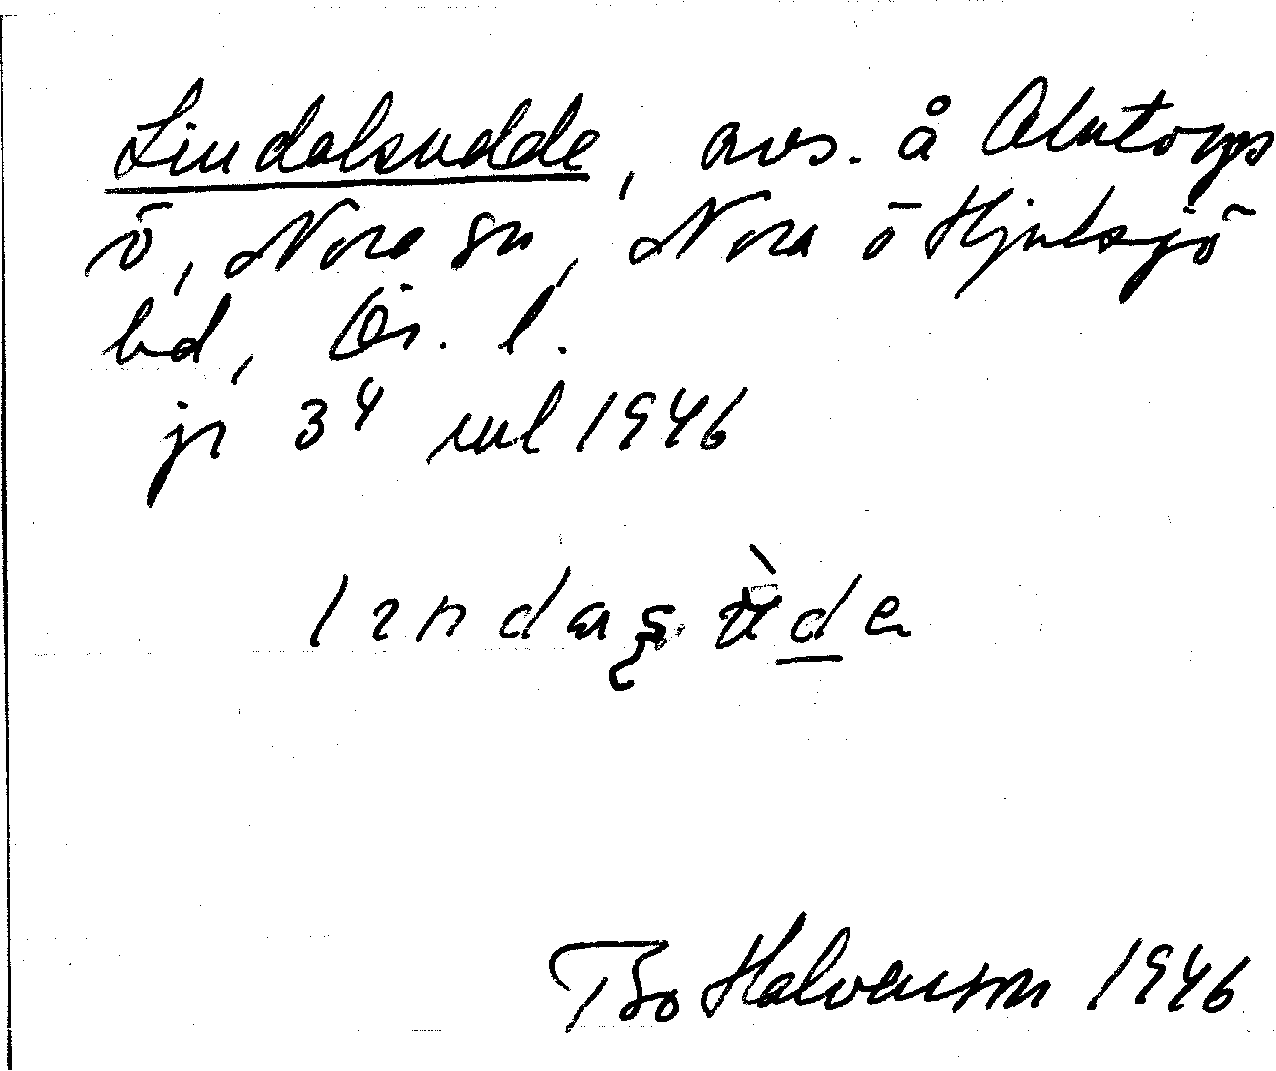 Lindalsudde, avs. å Alntorps
ö, Nora sn, Nora o Hjulsjö
bd, Ör. l.
jr 34 uul 1946
lındas̨ ùde
Bo Halvarson 1946